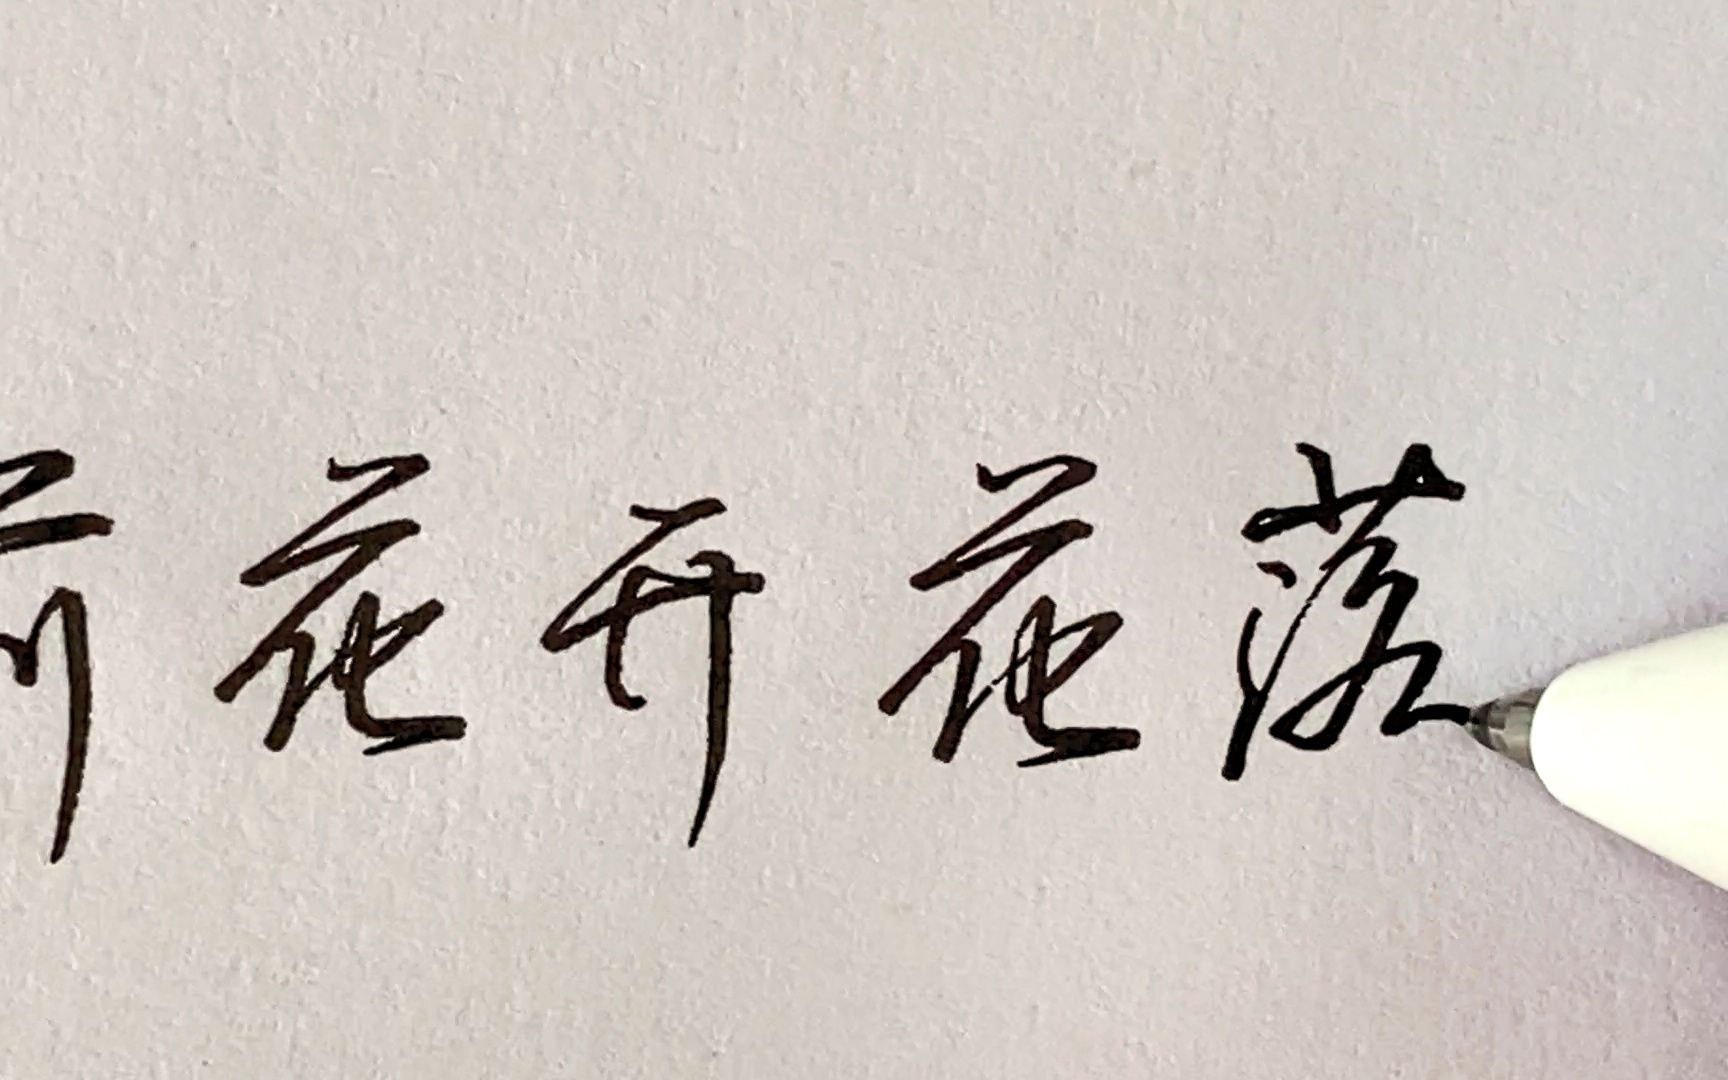 前花开花落